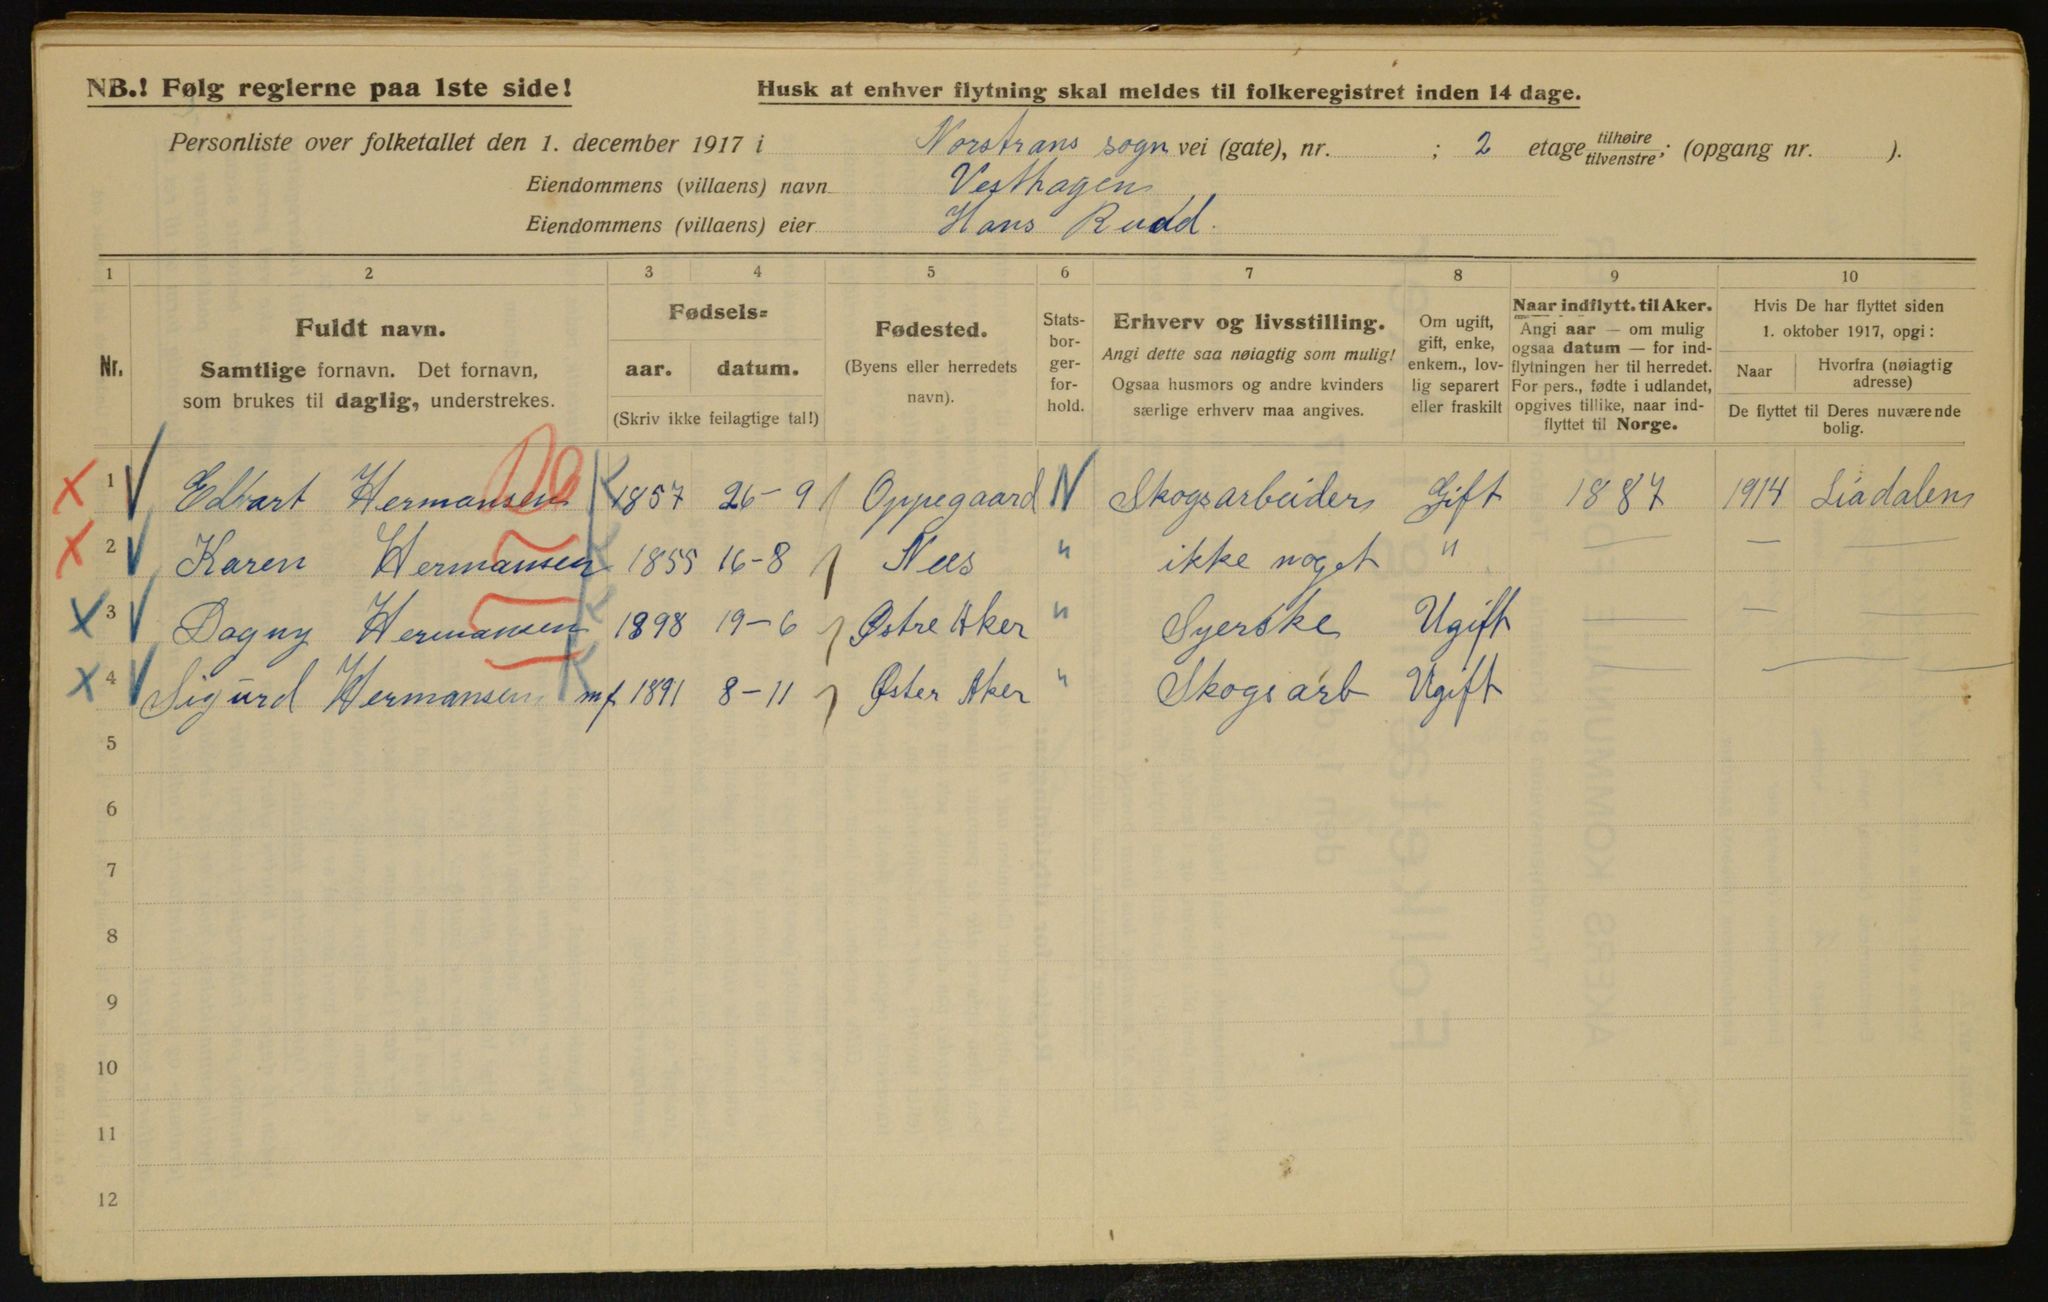 NB.! Følg reglerne paa 1ste side!
Husk at enhver flytning skal meldes til folkeregistret inden 14 dage.
Personliste over folketallet den 1. december 1917 i Norstrans sogn vei (gate), nr. ; 2 etage tilhøire/tilvenstre; (opgang nr. ).
Eiendommens (villaens) navn Vesthagen
Eiendommens (villaens) eier Hans Rudd.
1 2 3 4 5 6 7 8 9 10
Nr.
Fuldt navn.
Samtlige fornavn. Det fornavn,
som brukes til daglig, understrekes.
Fødsels=
aar. datum.
(Skriv ikke feilagtige tal!)
Fødested.
(Byens eller herredets
navn).
Stats-
bor-
ger-
for-
hold.
Erhverv og livsstilling.
Angi dette saa nøiagtig som mulig!
Ogsaa husmors og andre kvinders
særlige erhverv maa angives.
Om ugift,
gift, enke,
enkem., lov-
lig separert
eller fraskilt
Naar indflytt. til Aker.
Angi aar — om mulig
ogsaa datum — for ind-
flytningen her til herredet.
For pers., fødte i udlandet,
opgives tillike, naar ind-
flyttet til Norge.
Hvis De har flyttet siden
1. oktober 1917, opgi:
Naar
Hvorfra (nøiagtig
adresse)
De flyttet til Deres nuværende
bolig.
x 1 Edvart Hermansen K 1857 26-9 Oppegaard N Skogsarbeider Gift 1887 1914 Liadalen
x 2 Karen Hermansen K 1855 16-8 Nes " ikke noget " — — —
x 3 Dagny Hermansen K 1898 19-6 Østre Aker " Syerske Ugift — — —
x 4 Sigurd Hermansen K mf 1891 8-11 Øster Aker " Skogsarb Ugift — —
5
6
7
8
9
10
11
12